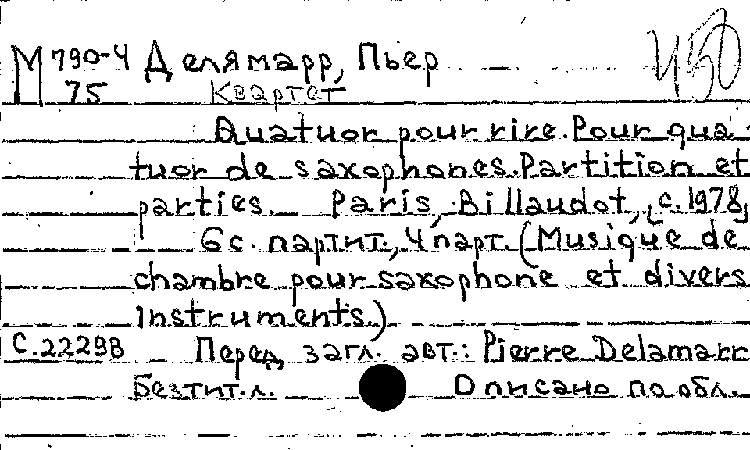 М 790-4 Делямарр, Пьер 450
75 Квартет
Quatuor pour rire. Pour qua-
tuor de saxophones. Partition et
parties. Paris, Billaudot, c. 1978,
6 с. партит., 4 парт. (Musique de
chambre pour saxophone et divers
instruments.)
С.2229В Перед загл. авт.: Pierre Delamarr
Без тит. л. Описано по обл.